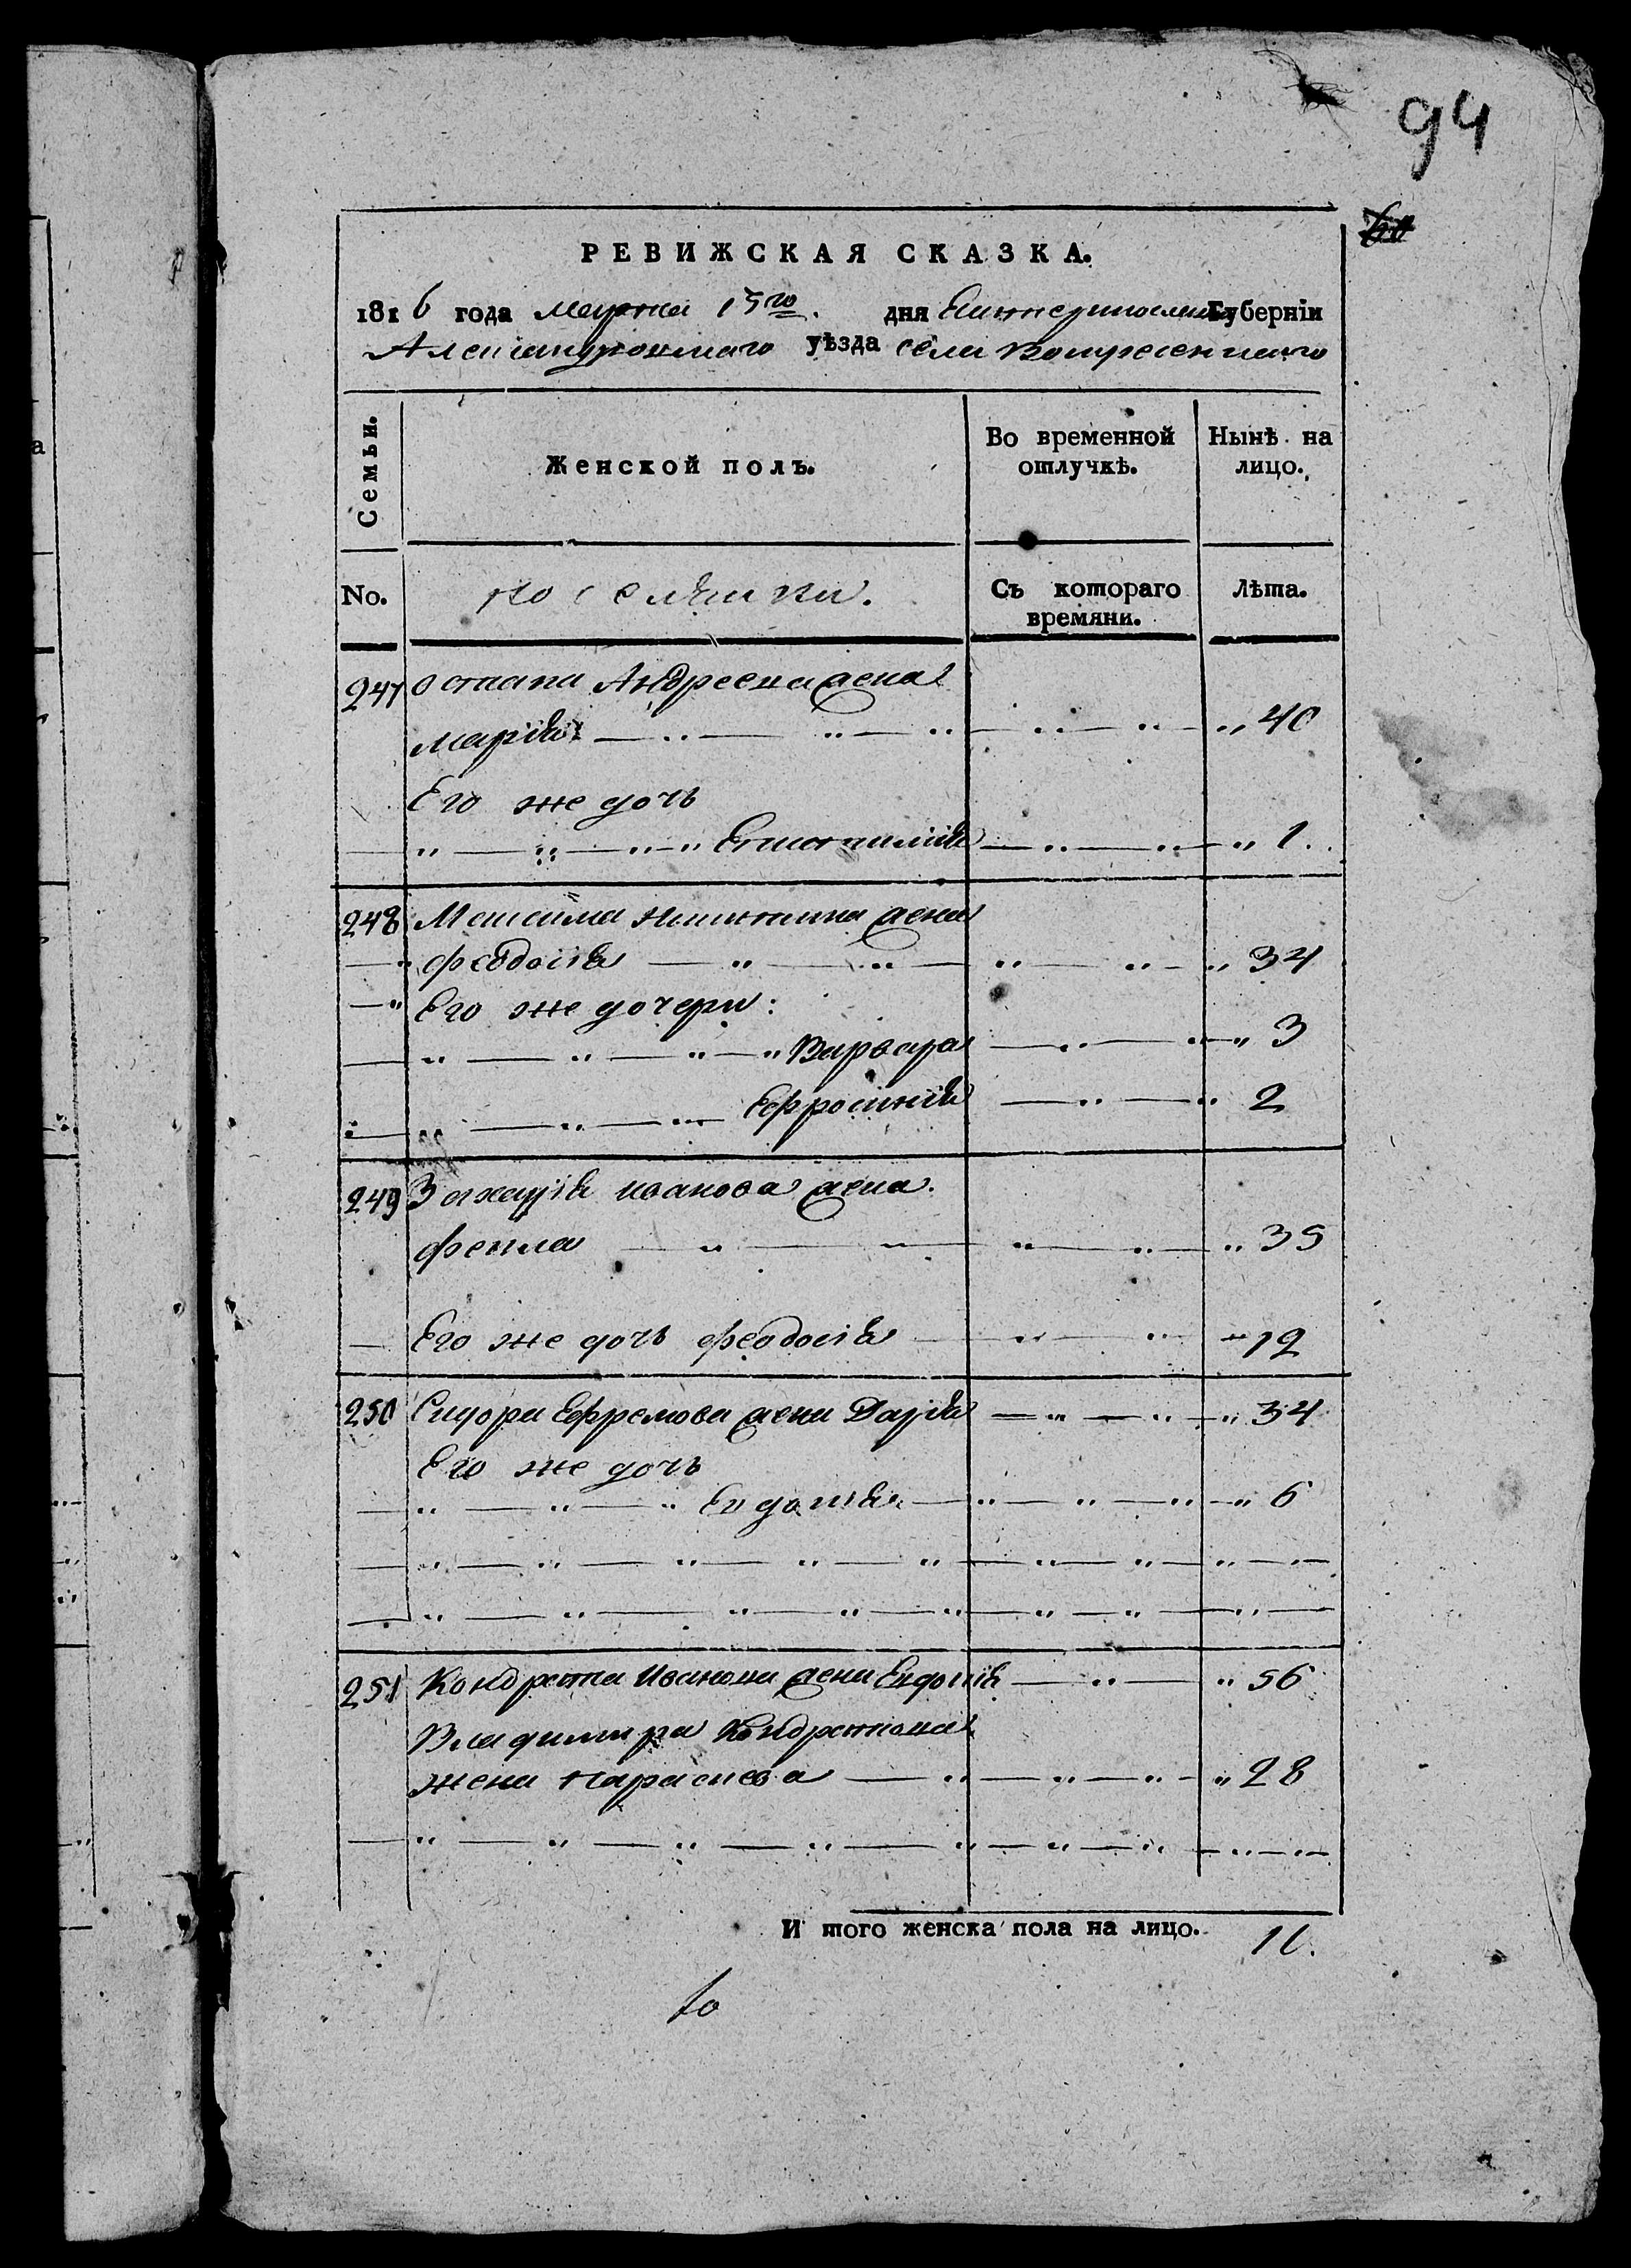 94
РЕВИЖСКАЯ СКАЗКА.
1816 года Марта 15го дня Екатеринославской Губерніи
Александровскаго уѣзда села Воскресенскаго
Семьи.
Женской полъ.
Во временной отлучкѣ.
Нынѣ на лицо.
No.
поселянки.
Съ котораго времяни.
Лѣта.
247 Остапа Андреева жена
Марія 40
Его же дочь
1
248 Максима Никитина жена
Феодосія 34
Его же дочери:
Варвара 3
Ефросинія 2
249 Захарія Иванова жена
Фекла 35
Его же дочь Феодосія 12
250 Сидора Ефремова жена Дарія 34
Его же дочь
Евдокія 6
251 Кондрата Иванова жена Евдокія 56
Владимира Кондратова
жена Параскева 28
И того женска пола на лицо. 11.